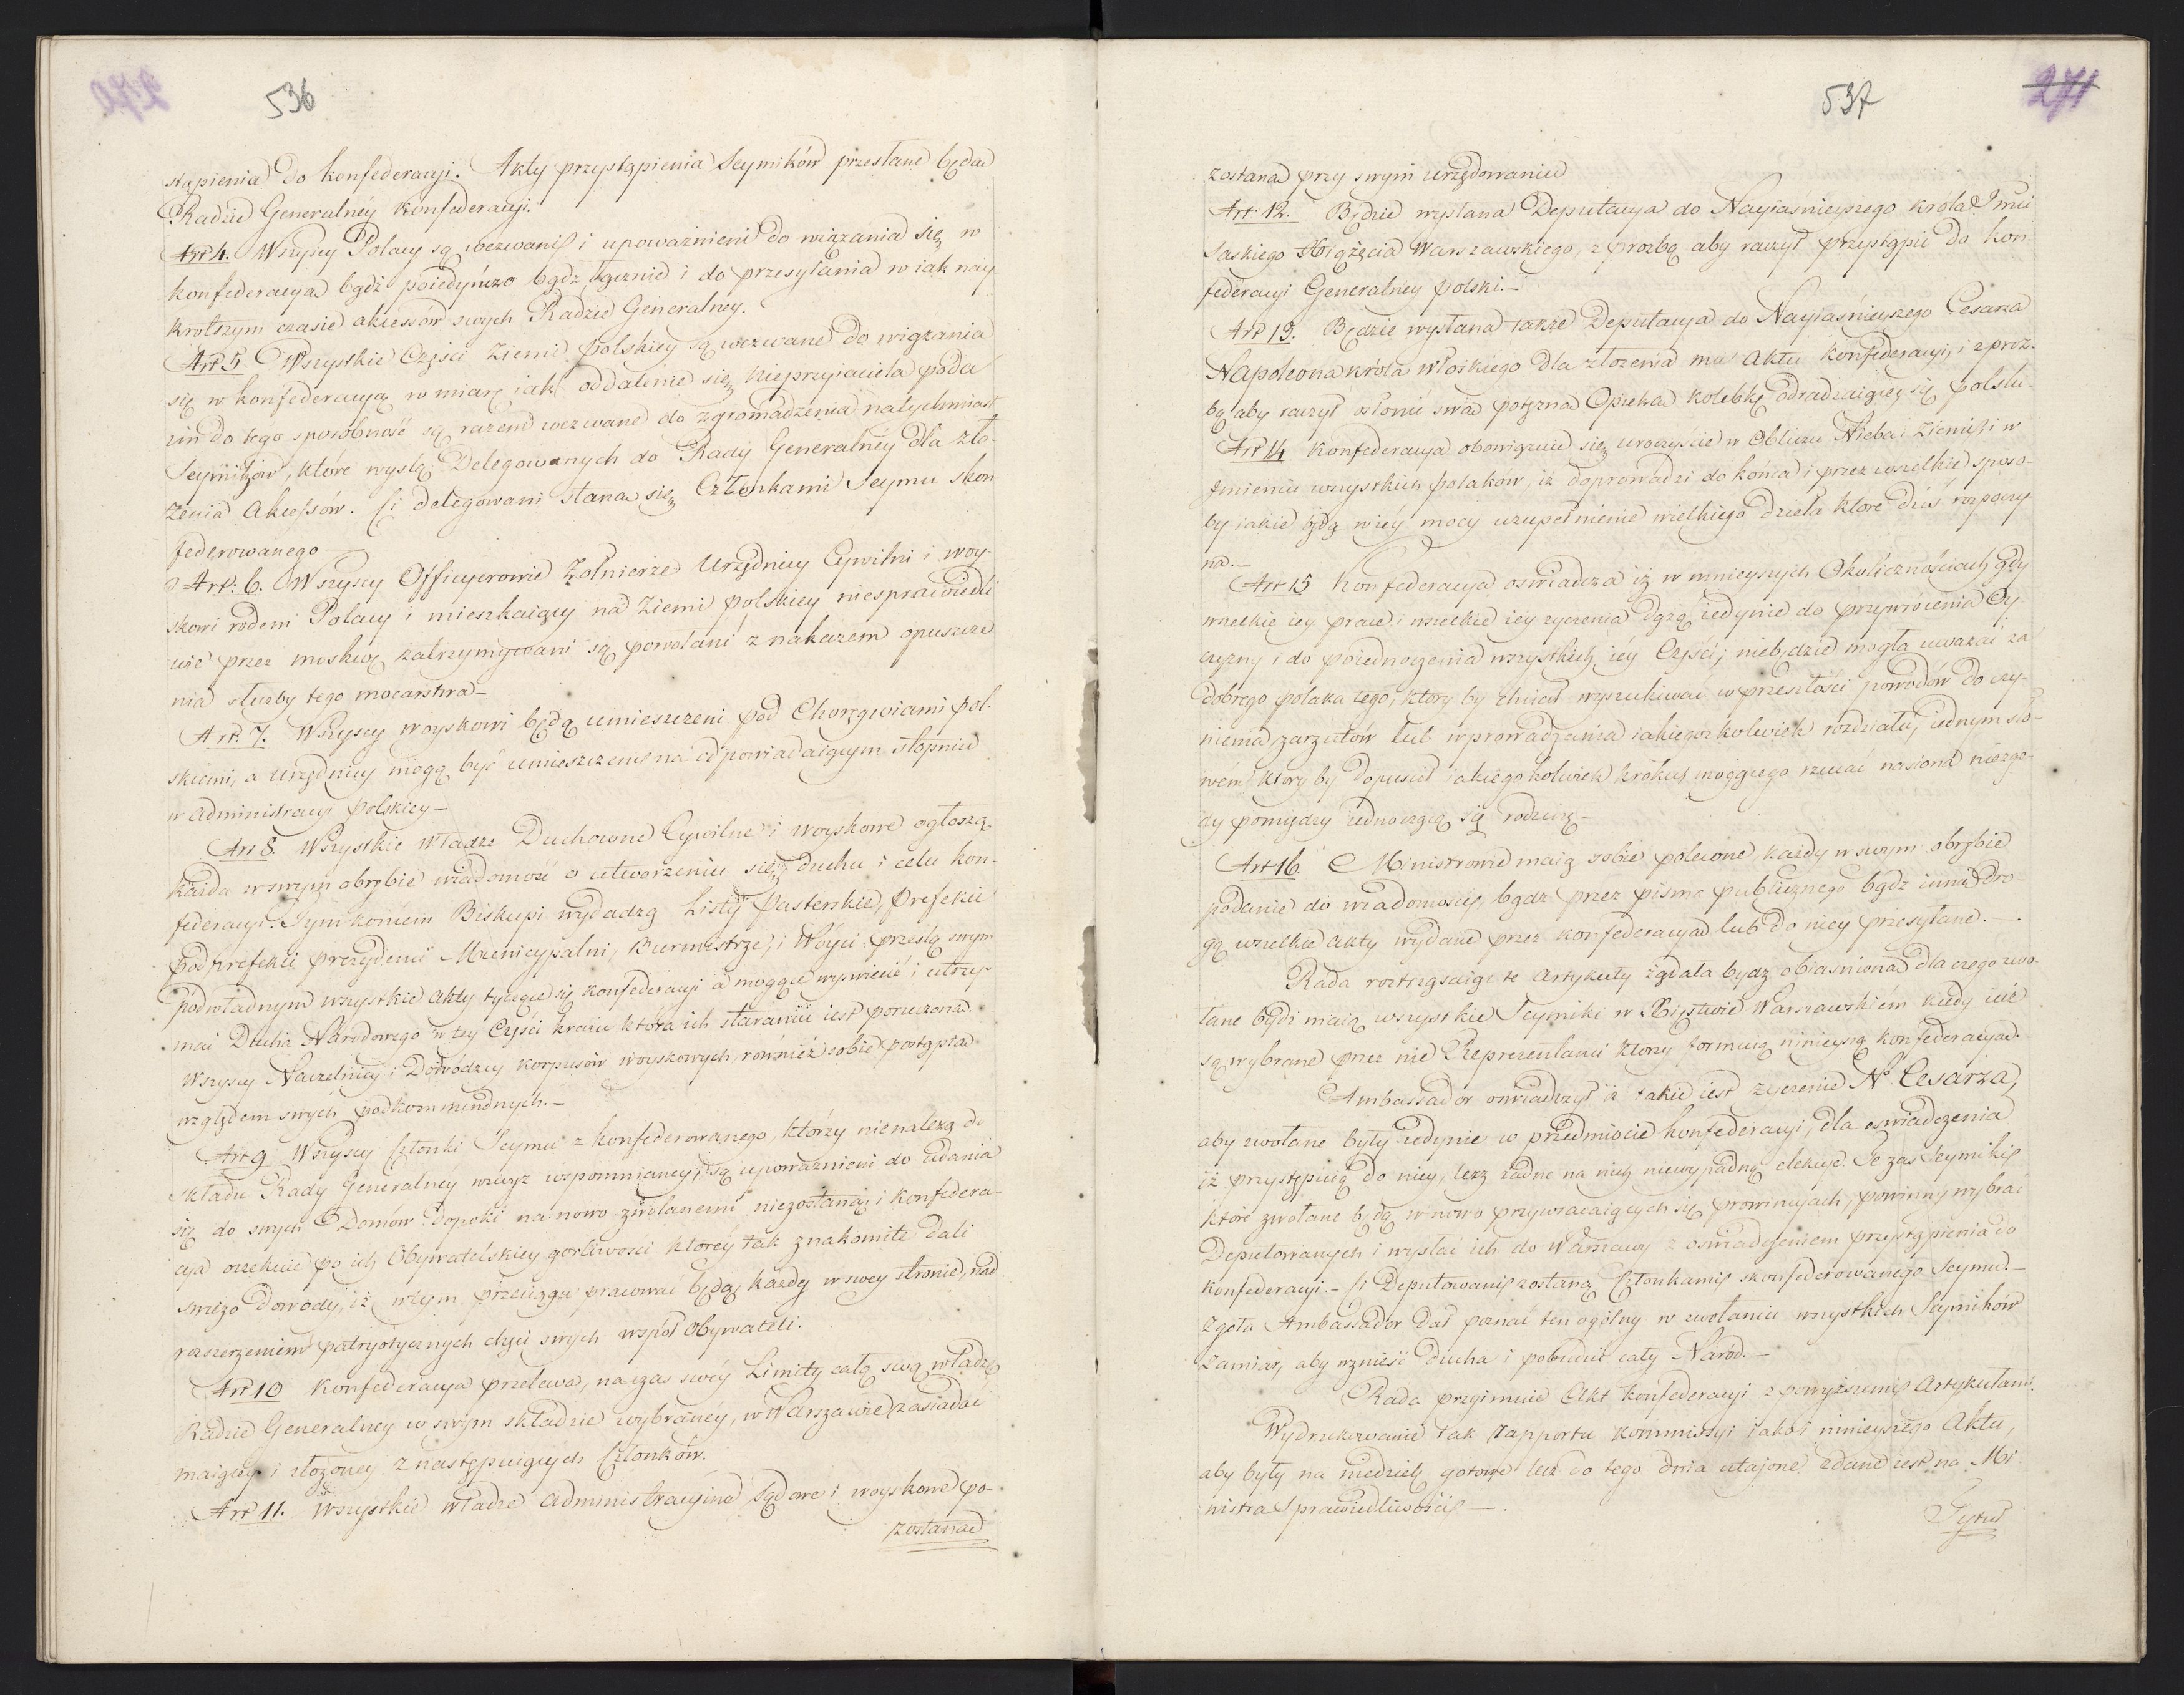 536
stąpienia do konfederacyi. Akty przystąpienia Seymików przesłane będą
Radzie Generalnéy Konfederacyi.
Art 4. Wszyscy Polacy są wezwani i upoważnieni do wiązania się w
konfederacyą bądź poiedyńczo bądź łącznie i do przesyłania w iak nay
krotszym czasie akcessów swych Radzie Generalney.
Art 5 Wszystkie Części Ziemi polskiey są wezwane do wiązania
się w konfederacyą w miarę iak oddalenie się nieprzyiaciela poda
im do tego sposobność są razem wezwane do zgromadzenia natychmiast
Seymików, które wyslą Delegowanych do Rady Generalnéy dla zło-
żenia Akcessów. Ci delegowani staną się Członkami Seymu skon
federowanego —
Art: 6. Wszyscy Officyerowie Żołnierze Urzędnicy Cywilni i woy-
skowi rodem Polacy i mieszkaiący na Ziemi polskiey niesprawiedli
wie przez moskwę zatrzymywani są powołani z nakazem opuszcze
nia służby tego mocarstwa —
Art. 7. Wszyscy woyskowi będą umieszczeni pod Chorągwiami pol.
skiemi, a urzędnicy mogą być umieszczeni na odpowiadaiącym stopniu
w administracyi polskiey —
Art 8. Wszystkie Władze Duchowne Cywilne i woyskowe ogłoszą
każda w swym obrębie wiadomość o utworzeniu się, duchu i celu kon-
federacyi. Tym końcem Biskupi wydadzą Listy Pasterskie, Prefekci
podprefekci prezydenci Municypalni, Burmistrze, i Woyci prześlą swym
podwładnym wszystkie akty tyczące się konfederacyi a mogące wzniecić i utrzy-
mać Ducha Narodowego w tey Części kraiu która ich staraniu iest poruczona.
Wszyscy Naczelnicy i Dowódzcy korpusów woyskowych również sobie postąpią
względem swych podkommendnych. —
Art 9 Wszyscy Członki Seymu z konfederowanego, którzy nienależą do
składu Rady Generalney wzwyz wspomnianey, są upoważnieni do udania
się do swych Domów dopoki na nowo zwołanemi niezostaną, i konfedera-
cya oczekuie po ich Obywatelskiey gorliwosci któréy tak znakomite dali
swiezo dowody, iż w tym przeciągu pracować będą każdy w swey stronie, nad
rozszerzeniem patryotycznych chęci swych współ Obywateli.
Art 10 Konfederacya przelewa, na czas swéy Limity całą swą władzę
Radzie Generalney w swym składzie wybranéy, w Warszawie zasiadać
maiącéy i złożoney z następuiących Członków.
Art 11. Wszystkie Władze administracyine Sądowe i woyskowe po-
zostaną
537
271
zostaną przy swym urzędowaniu
Art. 12. Będzie wysłana Deputacya do Nayiaśnieyszego króla Jmci
Saskiego Xiążęcia Warszawskiego, z prozbą aby raczył przystąpić do kon-
federacyi Generalney Polski. —
Art 13. Będzie wysłana także Deputacya do Nayiaśnieyszego Cesarza
Napoleona króla Włoskiego dla złożenia mu Aktu konfederacyi, i z proź-
bą aby raczył osłonić swą potężną Opieką kolebkę odradzaiącey się Polski.
Art 14 Konfederacya obowiązuie się uroczyście w Obliczu Nieba i Ziemi, i w
Imieniu wszystkich polaków, iż doprowadzi do końca i przez wszelkie sposo-
by iakie będą w iey mocy uzupełnienie wielkiego dzieła które dziś rozpoczy-
na. —
Art 15 Konfederacya oswiadcza iż w ninieyszych Okolicznościach gdy
wszelkie iey prace i wszelkie iey zyczenia dążą iedynie do przywrócenia Oy-
czyzny i do poiednoczenia wszystkich iéy Części, niebędzie mogła uważać za
dobrego polaka tego, ktory by chciał wyszukiwać w przeszłości powodów do czy-
nienia zarzutów lub wprowadzania iakiegoż kolwiek rozdziału, iednym sło-
wém ktory by dopuścił iakiegokolwiek kroku mogącego rzucać nasiona niezgo
dy pomiędzy iednoczącą się rodzinę —
Art 16. Ministrowie maią sobie polecone, każdy w swym obrębie
podanie do wiadomości, bądz przez pisma publicznego bądz inną dro
gą wszelkie akty wydane przez konfederacyą lub do niey przesyłane. —
Rada roztrząsaiąc te artykuły żądała bydz obiasniona dla czego zwo-
łane bydź maią wszystkie Seymiki w Xięstwie Warszawskiém kiedy iuż
są wybrane przez nie Reprezentanci ktorzy formuią ninieyszą konfederacyą.
Ambassador oswiadczył iż takie iest życzenie N° Cesarza,
aby zwołane były iedynie w przedmiocie konfederacyi, dla oswiadczenia
iż przystępuią do niey, lecz żadne na nich niewypadną elekcye. Te zas Seymiki
które zwołane będą w nowo przywracaiących się prowincyach, powinny wybrać
Deputowanych i wysłać ich do Warszawy z oświadczeniem przystąpienia do
konfederacyi. — Ci Deputowani zostaną Członkami skonfederowanego Seymu. —
Zgoła Ambassador dał poznać ten ogólny w zwołaniu wszystkich Seymików
zamiar, aby wznieść ducha i pobudzić cały Naród. —
Rada przyimuie Akt konfederacyi z powyższemi Artykułami.
Wydrukowanie tak Rapportu kommissyi iako i ninieyszego Aktu,
aby były na niedzielę gotowe lecz do tego dnia utajone zdane iest na Mi-
nistra Sprawiedliwości —
Tytuł